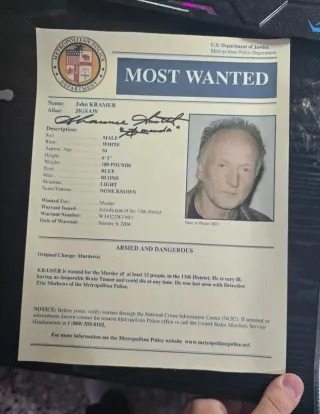 U.S. Department of Justice
Metropolitan Police Department
METROPOLITAN POLICE
DEPARTMENT
MOST WANTED
Name: John KRAMER
Alias: JIGSAW
Description:
"Amanda"
Sex: MALE
Race: WHITE
Approx. Age: 54
Height: 6' 1"
Weight: 180 POUNDS
Eyes: BLUE
Hair: BLOND
Skintone: LIGHT
Scars/Tattoos: NONE KNOWN
Wanted For: Murder
Warrant Issued: Jurisdiction of the 13th district
Warrant Number:
Date of Warrant: January 6, 2004
Date of Photo:
ARMED AND DANGEROUS
Original Charge: Murder(s)
KRAMER is wanted for the Murder of at least 12 people, in the 13th District. He is very ill,
having an inoperable Brain Tumor and could die at any time. He was last seen with Detective
Eric Mathews of the Metropolitan Police.
NOTICE: Before arrest, verify warrant through the National Crime Information Center (NCIC). If arrested or
whereabouts known contact the nearest Metropolitan Police office or call the United States Marshals Service
Headquarters at 1 (800) 555-0102.
For more information see the Metropolitan Police website www.metropolitanpolice.net